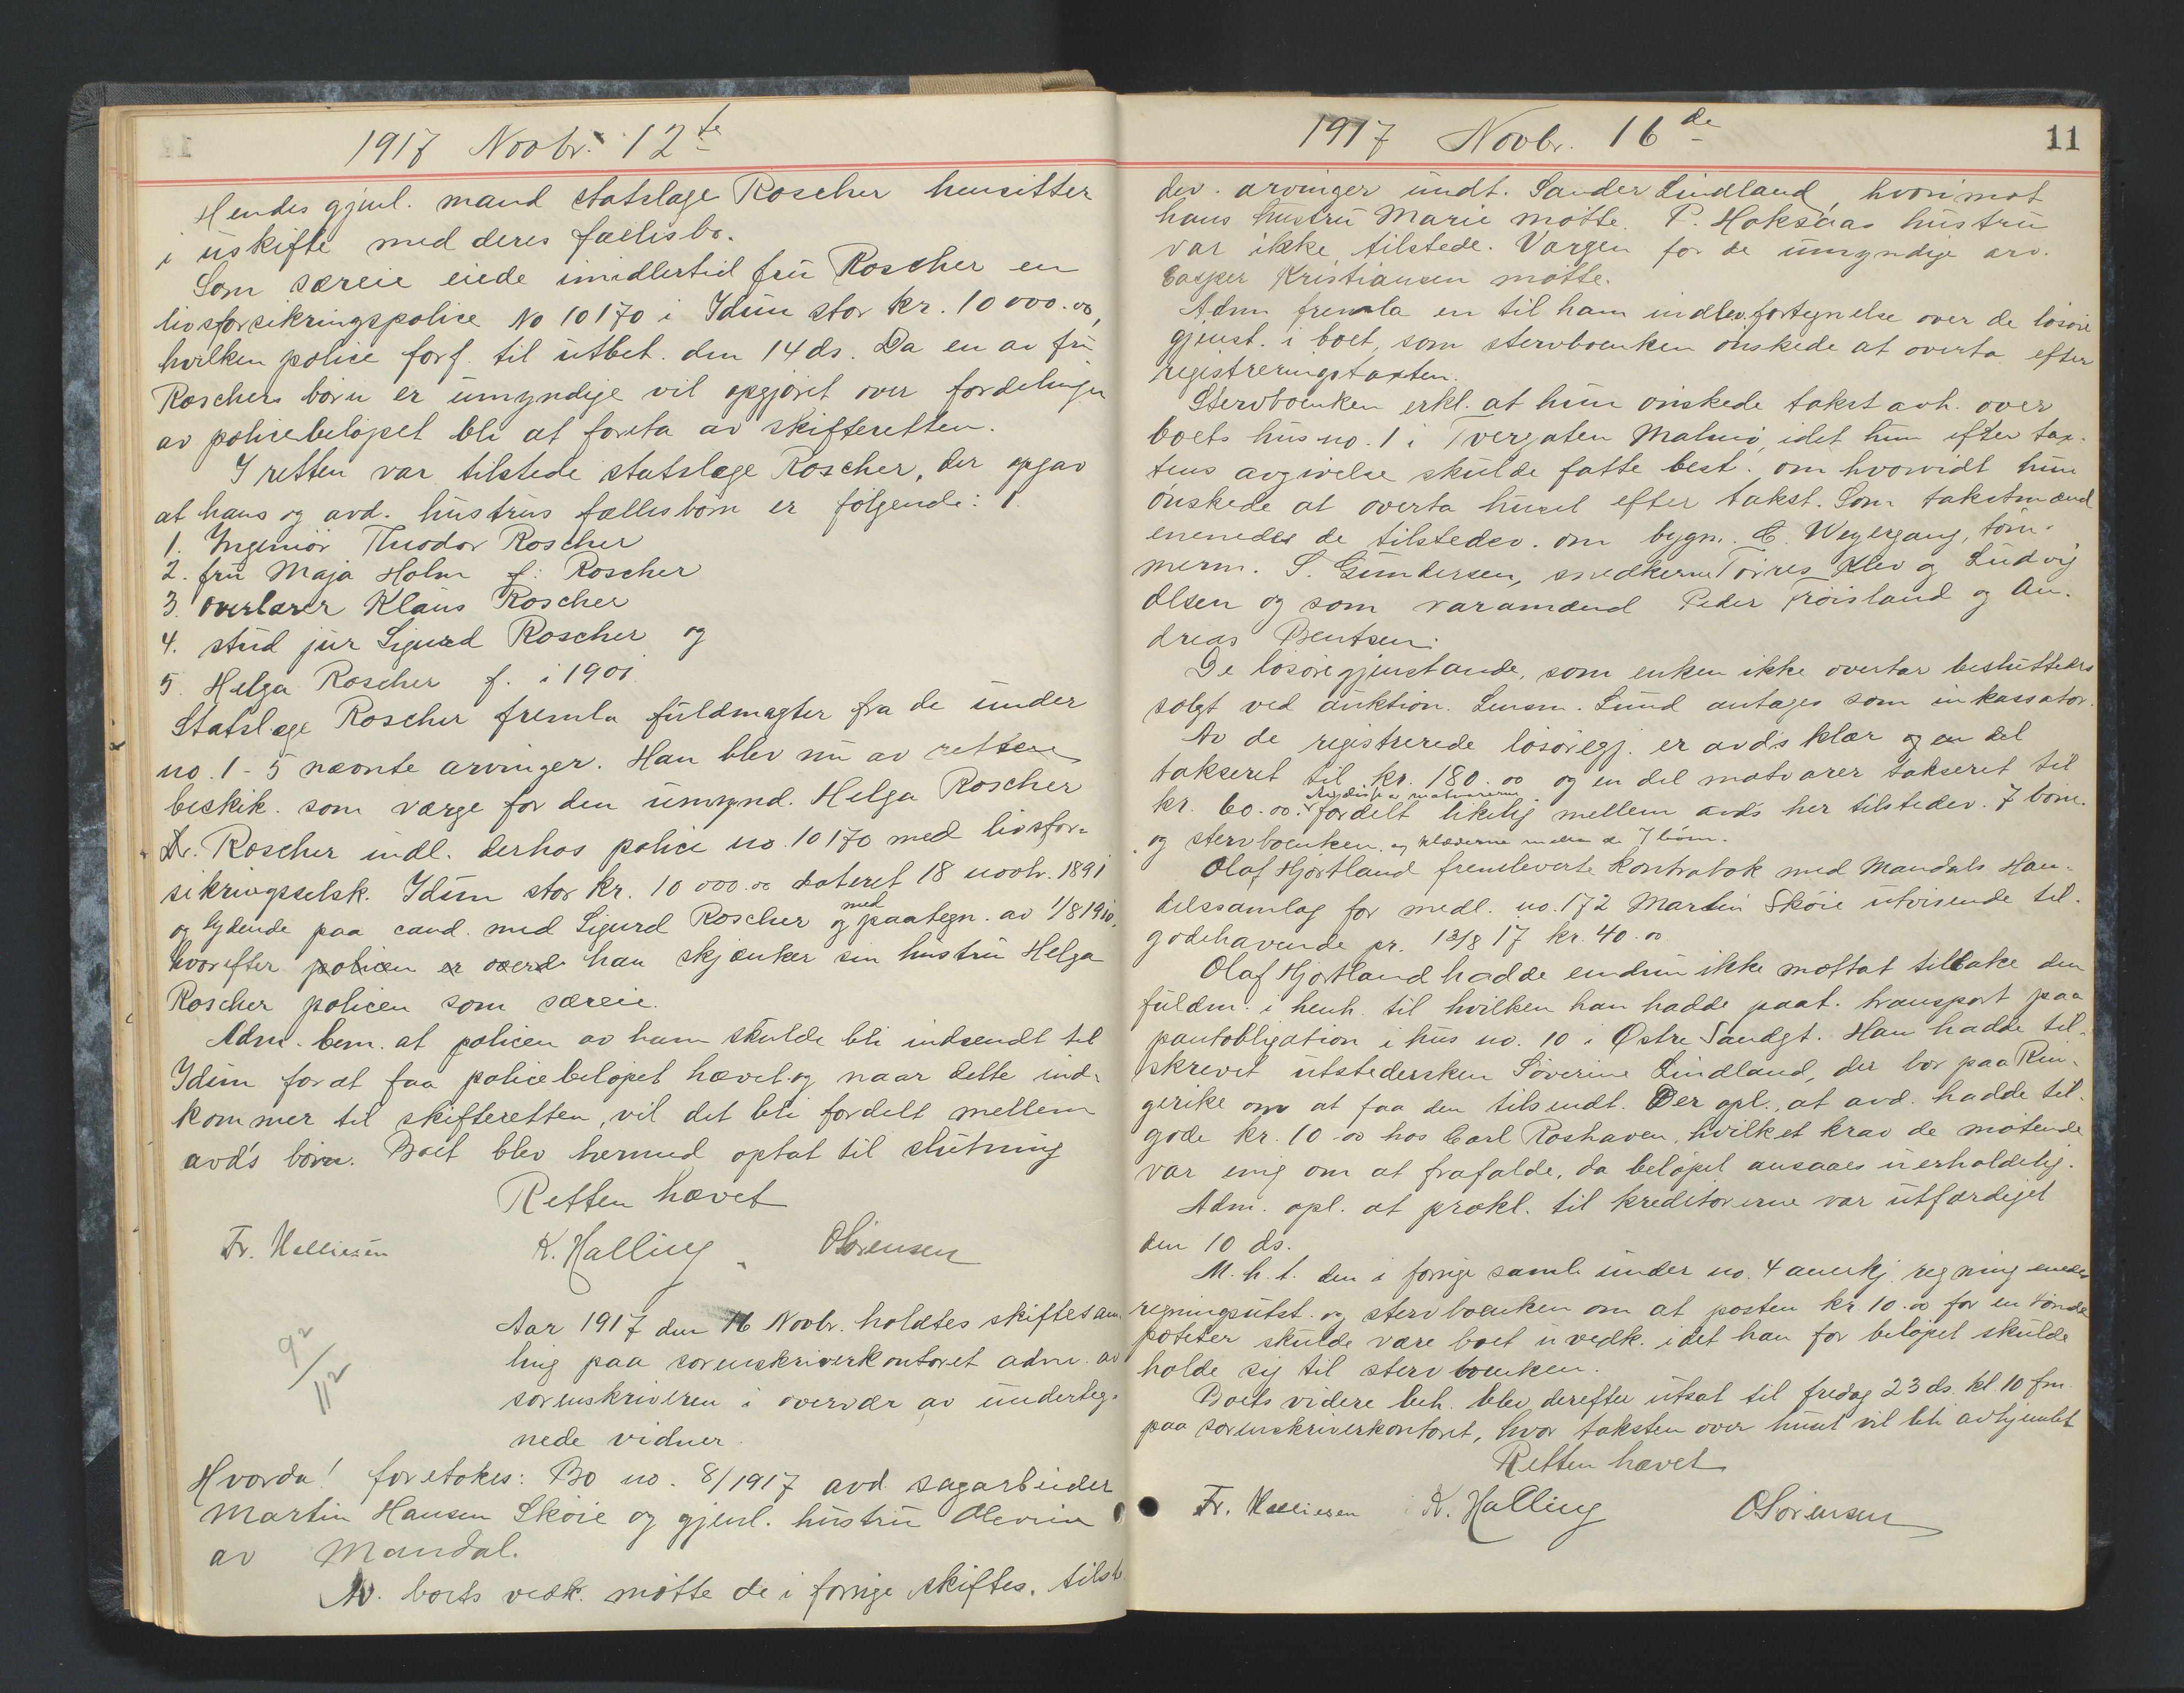 1917 Novbr. 12te
Hendes gjenl. mand statslæge Roscher hensitter
i uskifte med deres fællesbo.
Som særeie eiede imidlertid fru Roscher en
livsforsikringspolice No 10170 i Idun stor kr. 10000.00,
hvilken police forf. til utbet. den 14 ds. Da en av fru
Roschers børn er umyndige vil opgjøret over fordelingen
av policebeløpet bli at foreta av skifteretten.
I retten var tilstede statslæge Roscher, der opgav
at hans og avd. hustrus fællesbørn er følgende: 1.
1. Ingeniør Theodor Roscher
2. fru Maja Holm f. Roscher
3. overlærer Klaus Roscher
4. stud jur Sigurd Roscher og
5. Helga Roscher f. i 1901
Statslæge Roscher fremla fuldmagter fra de under
no. 1 - 5 nævnte arvinger. Han blev nu av retten
beskik. som værge for den umynd. Helga Roscher
Dr. Roscher indl. derhos police no. 10170 med livsfor-
sikringsselsk. Idun stor kr. 10000.00 dateret 18 novbr. 1891
og lydende paa cand. med Sigurd Roscher og med paategn. av 1/8 1910,
hvorefter policen er han skjænker sin hustru Helga
Roscher policen som særeie.
Adm. bem. at policen av ham skulde bli indsendt til
Idun for at faa policebeløpet hævet og naar dette ind-
kommer til skifteretten, vil det bli fordelt mellem
avd's børn. Boet blev hermed optat til slutning
Retten hævet
Fr. K. Halling OSørensen
Aar 1917 den 16 Novbr. holdtes skiftesam-
ling paa sorenskriverkontoret adm. av
sorenskriveren i overvær av underteg-
nede vidner.
9 2/11 2
Hvorda! foretokes: Bo no. 8/1917 avd sagarbeider
Martin Hansen Skøie og gjenl. hustru Olevine
av Mandal.
Av boets vedk. møtte de i forrige skiftes. tilst.
1917 Novbr. 16de
11
dev. arvinger undt. Sander Lindland, hvorimot
hans hustru Marie møtte. P. Hoksaas hustru
var ikke tilstede. Værgen for de umyndige arv.
Casper Kristiansen møtte.
Adm fremla en til ham indlev. fortegnelse over de løsøre
gjenst. i boet, som stervboenken ønskede at overta efter
registreringstaxten.
Stervboenken erkl. at hun ønskede takst avh. over
boets hus no. 1 i Tvergaten Malmø, idet hun efter tax-
tens avgivelse skulde fatte best. om hvorvidt hun
ønskede at overta huset efter takst. Som takstmænd
enenedes de tilstedev. om bygm. C. Weyergang, tøm-
merm. S. Gundersen, snedkerne Torres Klev og Ludvig
Olsen og som varamænd Peder Frøisland og An-
dreas Bentsen.
De løsøregjenstande, som enken ikke overtar besluttedes
solgt ved auktion. Lensm. Lund antages som inkassator.
Av de registrerede løsøregj. er avd's klær og en del
takseret til kr. 180.00 og en del matvarer takseret til
kr. 60.00. fordelt likelig mellem avds her tilstedev. 7 børn.
og stervboenken. og klæderne mellem de 7 børn.
Olaf Hjortland fremleverte kontrabok med Mandals Han-
delssamlag for medl. no. 172 Martin Skøie utvisende til-
godehavende pr. 13/8 17 kr. 40.00
Olaf Hjortland hadde endnu ikke mottat tilbake den
fuldm. i henh. til hvilken han hadde paat. transport paa
pantobligation i hus no. 10 i Østre Sandgt. Han hadde til-
skrevet utstedersken Søverine Lindland, der bor paa Rin-
gerike om at faa den tilsendt. Der opl., at avd. hadde til-
gode kr. 10.00 hos Carl Roshaven, hvilket krav de møtende
var enig om at frafalde, da beløpet ansaaes uerholdelig.
Adm. opl. at prokl. til kreditorerne var utfærdiget
den 10 ds.
M.h.t. den i forrige saml. under no. 4 anerkj. regning enedes
regningsutst. og stervboenken om at posten kr 10.00 for en tønde
poteter skulde være boet uvedk. idet han for beløpet skulde
holde sig til stervboenken.
Boets videre beh. blev derefter utsat til fredag 23 ds. kl. 10 fm
paa sorenskriverkontoret, hvor taksten over huset vil bli avhjemlet
Retten hævet
Fr. K. Halling OSørensen